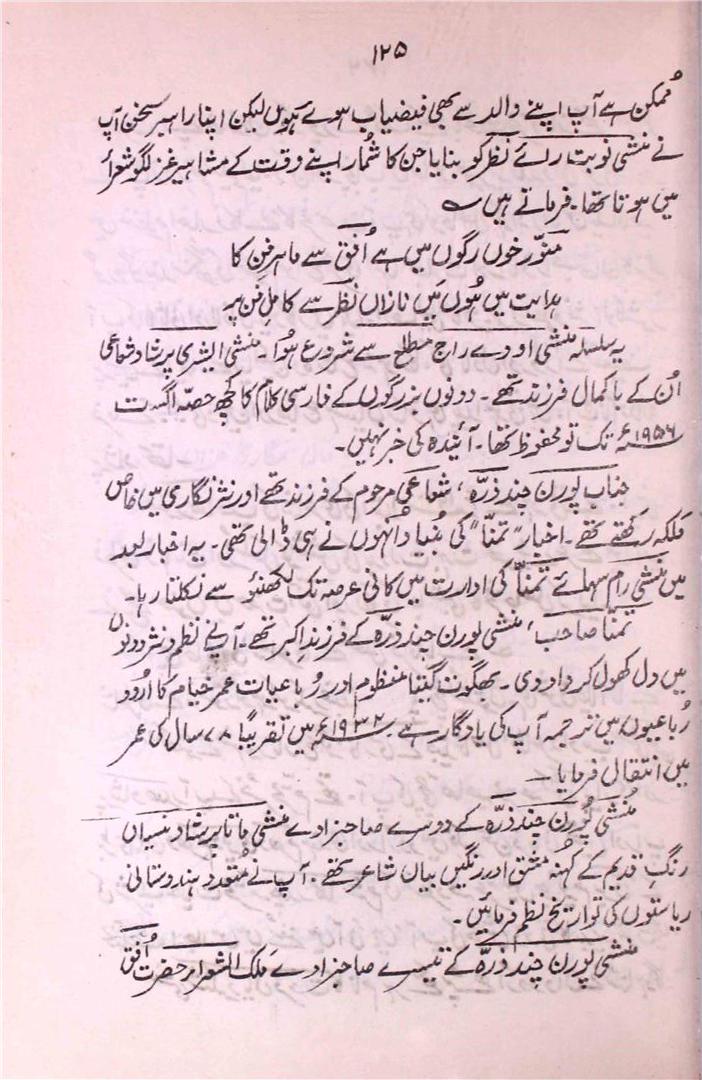 ۱۲۵
مُمکن ہے آپ اپنے والد سے بھی فیضیاب ہوئے ہوں لیکن اپنا راہبر سخن آپ
نے منشی نوبت رائے نظر کو بنایا جن کا شُمار اپنے وقت کے مشاہیر غزلگو شعرأ
میں ہوتا تھا۔ فرماتے ہیں ؎
منوّر خوں رگوں میں ہے اُفق سے ماہرِ فن کا
ہدایت میں ہُوں مَیں نازاں نظر سے کاملِ فن پہ
یہ سلسلہ منشی اودے راج مطلع سے شروع ہُوا۔ منشی الیشری پرشاد شعاعی
اُن کے باکمال فرزند تھے۔ دونوں بزرگوں کے فارسی کلام کا کچھ حصّہ اگست
۱۹۵۶ء تک تو محفوظ تھا۔ آئیندہ کی خبر نہیں۔
جناب پورن چند ذرّہ، شعاعی مرحوم کے فرزند تھے اور نثر نگاری میں خاص
ملکہ رکھتے تھے۔ اخبار "تمنّا" کی بُنیاد اُنہوں نے ہی ڈالی تھی۔ یہ اخبار بعد
میں منشی رام سہائے تمنّا کی ادارت میں کافی عرصہ تک لکھنئو سے نکلتا رہا۔
تمنّا صاحب، منشی پورن چند ذرّہ کے فرزندِ اکبر تھے۔ آپنے نظم و نثر دونوں
میں دل کھول کر داد دی۔ بھگوت گیتا منظوم اور رُباعیات عمر خیام کا اُردو
رُباعیوں میں ترجمہ آپ کی یادگار ہے۔ ۱۹۳۲ء میں تقریباً ۷۸ سال کی عمر
میں انتقال فرمایا۔
مُنشی پُورن چند ذرّہ کے دوسرے صاحبزادے منشی ماتا پرشاد نیساں
رنگِ قدیم کے کہُنہ مشق اور رنگیں بیاں شاعر تھے۔ آپ نے مُتعدّد ہندوستانی
ریاستوں کی تواریخ نظم فرمائیں۔
منشی پورن چند ذرّہ کے تیسرے صاحبزادے مَلک الشعرأ حضرت اُفق